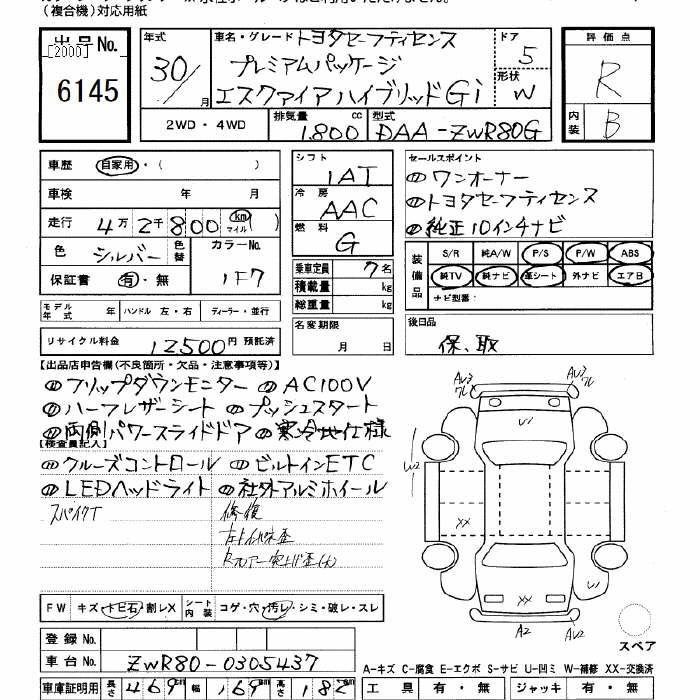 (複合機)対応用紙
出品No.
[2000]
6145
年式
30/
月
車名・グレード トヨタセーフティセンス
プレミアムパッケージ
エスクァイアハイブリッドGi
ドア
5
形状
W
評価点
R
内装
B
2WD・4WD
排気量
1,800 cc
型式
DAA-ZWR80G
車歴
自家用・( )
車検 年 月
走行 4万2千800 km マイル ( )
色 シルバー 色替 カラーNo.
保証書 有・無 1F7
シフト
1AT
冷房
AAC
燃料
G
乗車定員 7名
積載量 kg
総重量 kg
セールスポイント
の ワンオーナー
の トヨタセーフティセンス
の 純正10インチナビ
装備品
S/R 純A/W P/S P/W ABS
純TV 純ナビ 革シート 外ナビ エアB
ナビ型番:
モデル年式 年 ハンドル 左・右 ディーラー・並行
リサイクル料金 12500円 預託済
名変期限
月 日
後日品
保、取
【出品店申告欄(不良箇所・欠品・注意事項等)】
の フリップダウンモニター の AC100V
の ハーフレザーシート の プッシュスタート
の 両側パワースライドドア の 寒冷地仕様
【検査員記入】
の クルーズコントロール の ビルトインETC
の LEDヘッドライト の 社外アルミホイール
修復
FW キズ・トビ石・割レX シート内装 コゲ・穴・汚レ・シミ・破レ・スレ
登録No.
車台No. ZWR80-0305437
車庫証明用 長さ 469cm 幅 169cm 高さ 182cm
AV3
フレ
AV3
フレ
W
W2
XX
XX
W
A2
AV2
スペア
A-キズ C-腐食 E-エクボ S-サビ U-凹ミ W-補修 XX-交換済
工具 有・無 ジャッキ 有・無